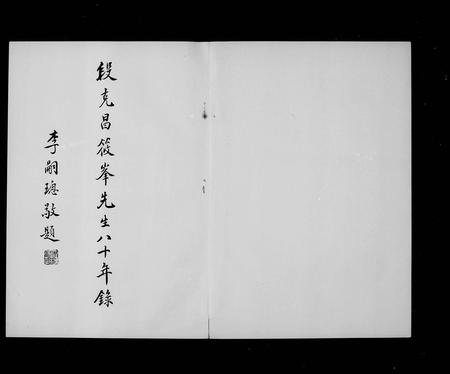 段克昌筱峯先生八十年錄
李嗣璁敬題